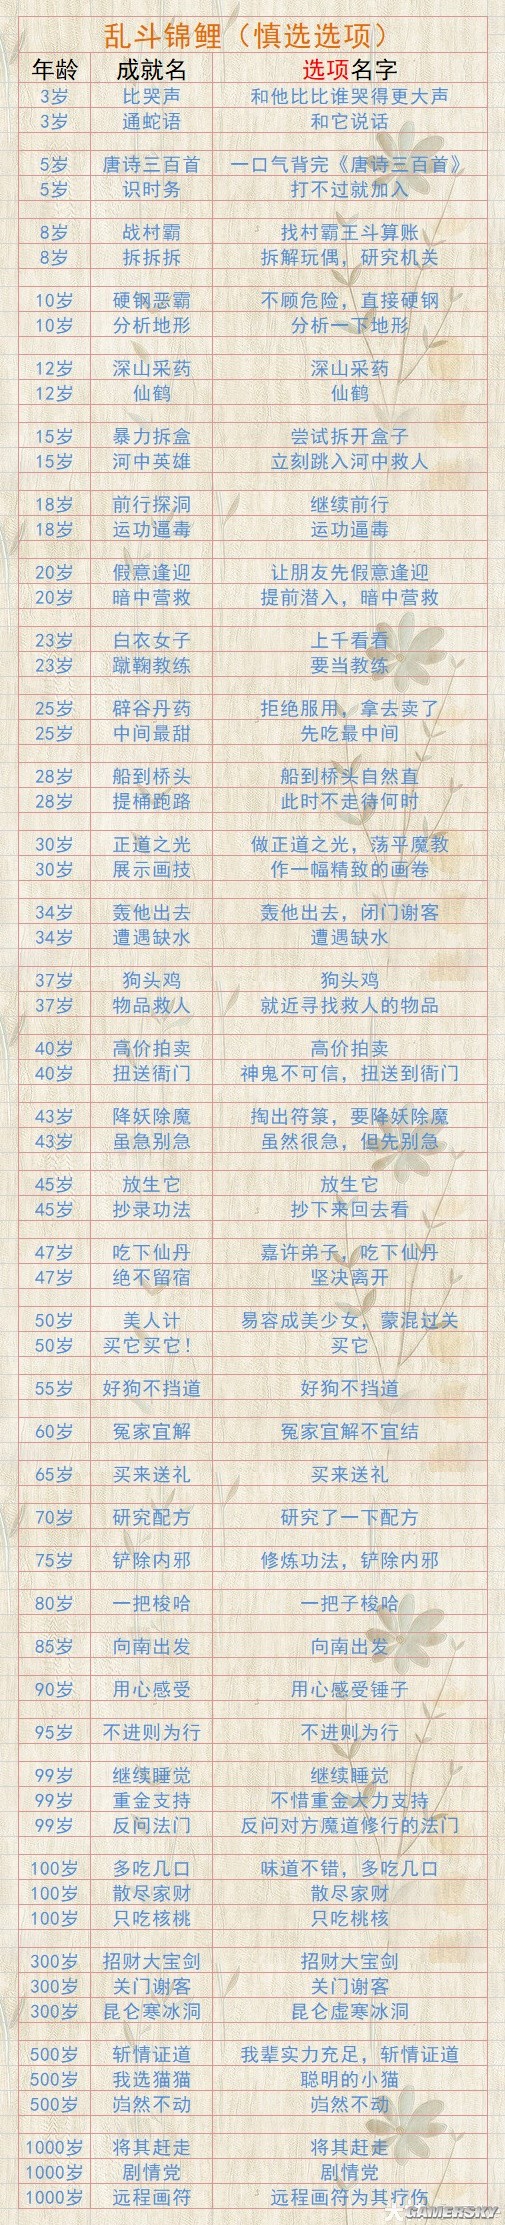 乱斗锦鲤（慎选选项）
年龄 成就名 选项名字
3岁 比哭声 和他比比谁哭得更大声
3岁 通蛇语 和它说话
5岁 唐诗三百首 一口气背完《唐诗三百首》
5岁 识时务 打不过就加入
8岁 战村霸 找村霸王斗算账
8岁 拆拆拆 拆解玩偶，研究机关
10岁 硬钢恶霸 不顾危险，直接硬钢
10岁 分析地形 分析一下地形
12岁 深山采药 深山采药
12岁 仙鹤 仙鹤
15岁 暴力拆盒 尝试拆开盒子
15岁 河中英雄 立刻跳入河中救人
18岁 前行探洞 继续前行
18岁 运功逼毒 运功逼毒
20岁 假意逢迎 让朋友先假意逢迎
20岁 暗中营救 提前潜入，暗中营救
23岁 白衣女子 上千看看
23岁 蹴鞠教练 要当教练
25岁 辟谷丹药 拒绝服用，拿去卖了
25岁 中间最甜 先吃最中间
28岁 船到桥头 船到桥头自然直
28岁 提桶跑路 此时不走待何时
30岁 正道之光 做正道之光，荡平魔教
30岁 展示画技 作一幅精致的画卷
34岁 轰他出去 轰他出去，闭门谢客
34岁 遭遇缺水 遭遇缺水
37岁 狗头鸡 狗头鸡
37岁 物品救人 就近寻找救人的物品
40岁 高价拍卖 高价拍卖
40岁 扭送衙门 神鬼不可信，扭送到衙门
43岁 降妖除魔 掏出符箓，要降妖除魔
43岁 虽急别急 虽然很急，但先别急
45岁 放生它 放生它
45岁 抄录功法 抄下来回去看
47岁 吃下仙丹 嘉许弟子，吃下仙丹
47岁 绝不留宿 坚决离开
50岁 美人计 易容成美少女，蒙混过关
50岁 买它买它！ 买它
55岁 好狗不挡道 好狗不挡道
60岁 冤家宜解 冤家宜解不宜结
65岁 买来送礼 买来送礼
70岁 研究配方 研究了一下配方
75岁 铲除内邪 修炼功法，铲除内邪
80岁 一把梭哈 一把子梭哈
85岁 向南出发 向南出发
90岁 用心感受 用心感受锤子
95岁 不进则为行 不进则为行
99岁 继续睡觉 继续睡觉
99岁 重金支持 不惜重金大力支持
99岁 反问法门 反问对方魔道修行的法门
100岁 多吃几口 味道不错，多吃几口
100岁 散尽家财 散尽家财
100岁 只吃核桃 只吃桃核
300岁 招财大宝剑 招财大宝剑
300岁 关门谢客 关门谢客
300岁 昆仑寒冰洞 昆仑虚寒冰洞
500岁 斩情证道 我辈实力充足，斩情证道
500岁 我选猫猫 聪明的小猫
500岁 岿然不动 岿然不动
1000岁 将其赶走 将其赶走
1000岁 剧情党 剧情党
1000岁 远程画符 远程画符为其疗伤
GAMERSKY